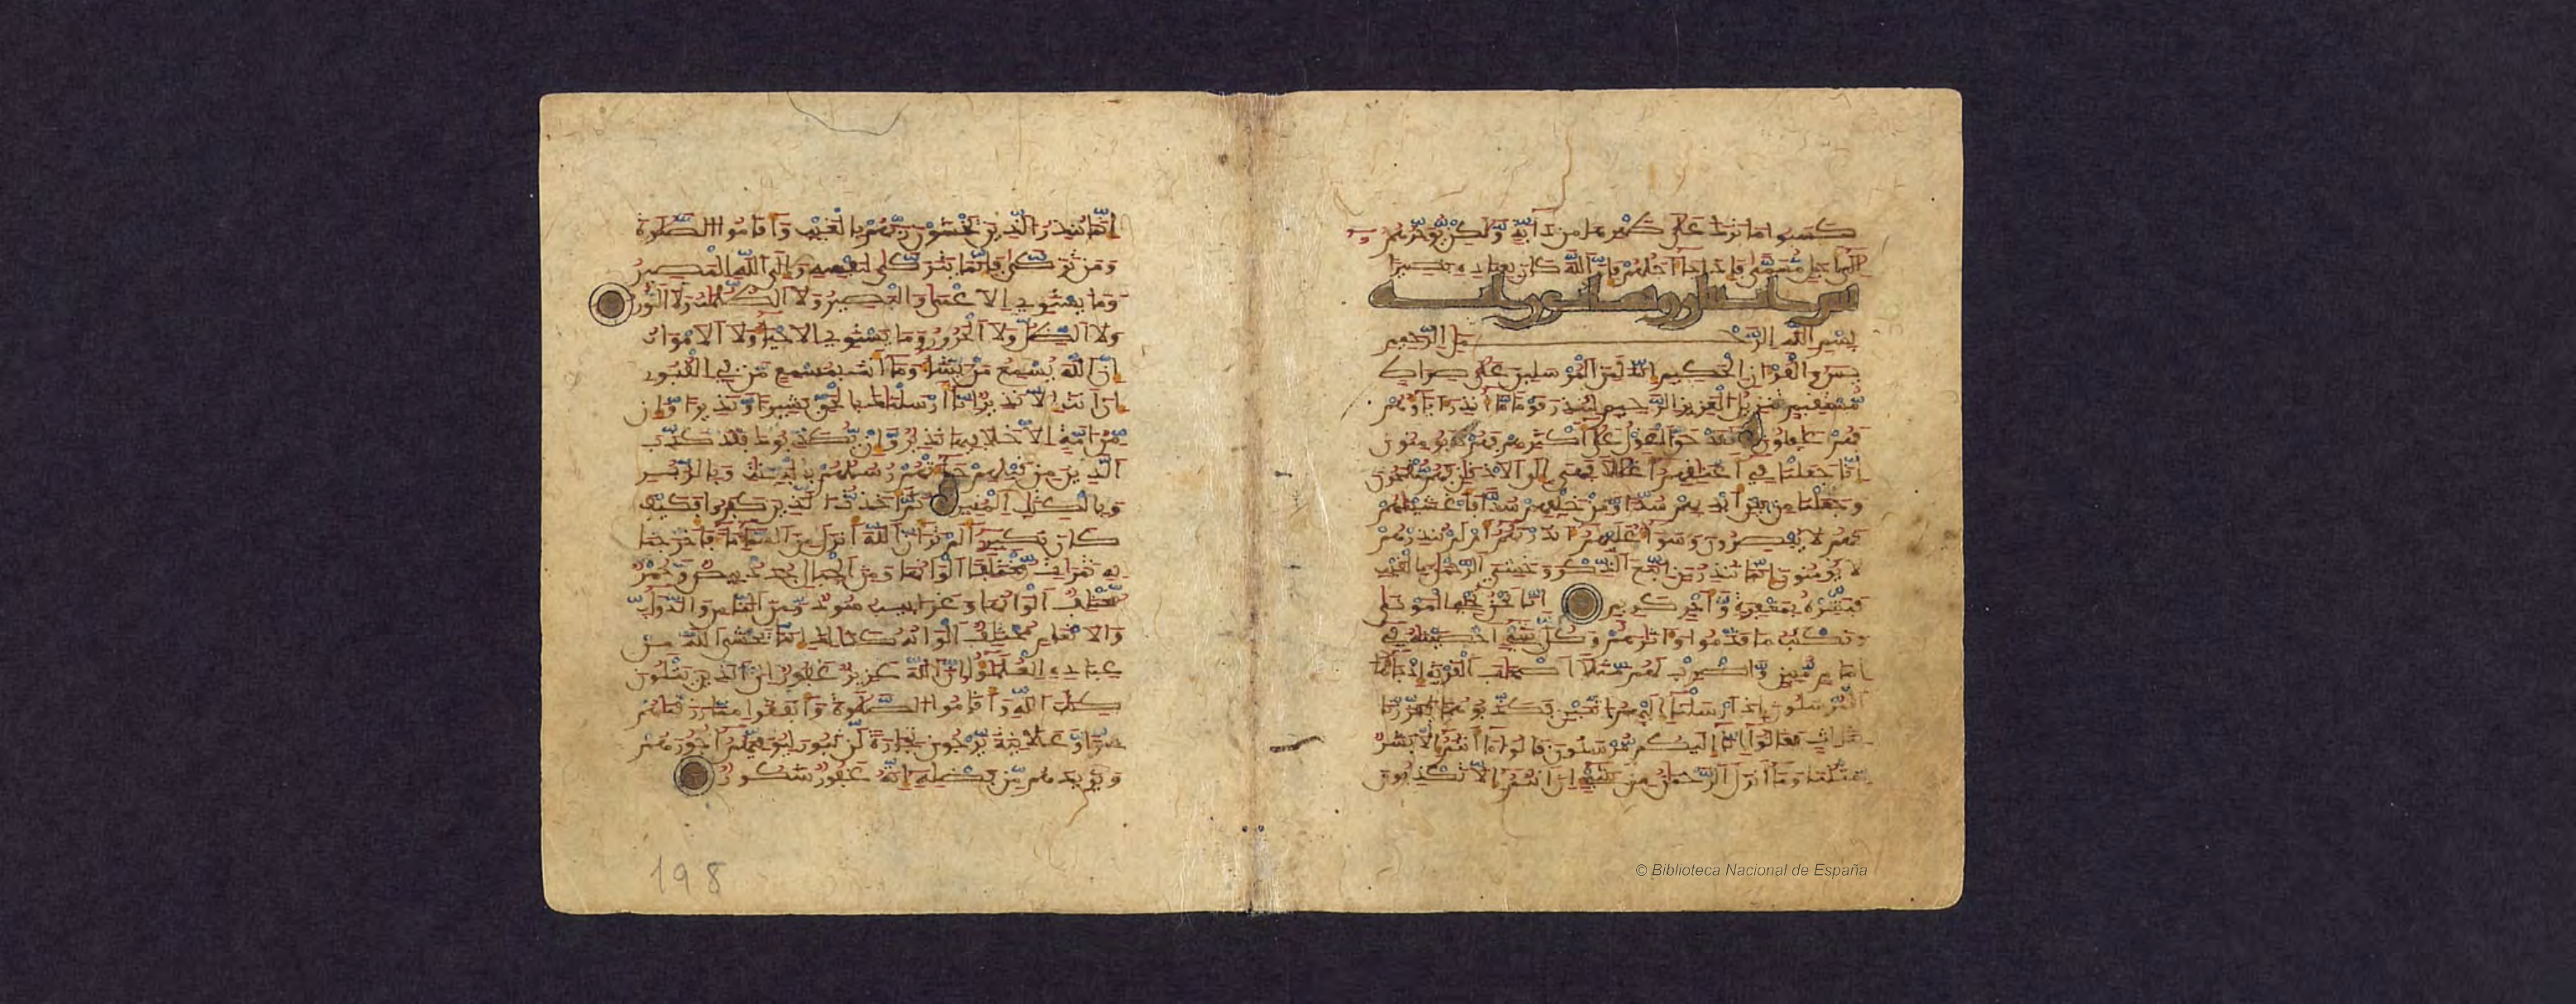 كسبوا ما ترك على ظهرها من دابة ولكن يؤخرهم
إلى أجل مسمى فإذا جا أجلهم فإن الله كان بعباده بصيرا
بسم الله الرحمن الرحيم
يس والقرءان الحكيم إنك لمن المرسلين على صراط
مستقيم تنزيل العزيز الرحيم لتنذر قوما ما أنذر ءاباؤهم
فهم غافلون لقد حق القول على أكثرهم فهم لا يؤمنون
إنا جعلنا في أعناقهم أغلالا فهي إلى الأذقان فهم مقمحون
وجعلنا من بين أيديهم سدا ومن خلفهم سدا فأغشيناهم
فهم لا يبصرون وسوا عليهم ءانذرتهم أم لم تنذرهم
لا يؤمنون إنما تنذر من اتبع الذكر وخشي الرحمن بالغيب
فبشره بمغفرة وأجر كريم إنا نحن نحي الموتى
ونكتب ما قدموا وءاثارهم وكل شيء أحصيناه في
إمام مبين واضرب لهم مثلا أصحاب القرية إذ جاها
المرسلون إذ أرسلنا إليهم اثنين فكذبوهما فعززنا
بثالث فقالوا إنا إليكم مرسلون قالوا ما أنتم إلا بشر
مثلنا وما أنزل الرحمن من شيء إن أنتم إلا تكذبون
إنما تنذر الذين يخشون ربهم بالغيب وأقاموا الصلوة
ومن تزكى فإنما يتزكى لنفسه وإلى الله المصير
وما يستوي الأعمى والبصير ولا الظلمات ولا النور
ولا الظل ولا الحرور وما يستوي الأحيا ولا الأموات
إن الله يسمع من يشا وما أنت بمسمع من في القبور
إن أنت إلا نذير إنا أرسلناك بالحق بشيرا ونذيرا وإن
من أمة إلا خلا فيها نذير وإن يكذبوك فقد كذب
الذين من قبلهم جاتهم رسلهم بالبينات وبالزبر
وبالكتاب المنير ثم أخذت الذين كفروا فكيف
كان نكير ألم تر أن الله أنزل من السما ما فأخرجنا
به ثمرات مختلفا ألوانها ومن الجبال جدد بيض وحمر
مختلف ألوانها وغرابيب سود ومن الناس والدواب
والأنعام مختلف ألوانه كذلك إنما يخشى الله من
عباده العلمؤا إن الله عزيز غفور إن الذين يتلون
كتاب الله وأقاموا الصلوة وأنفقوا مما رزقناهم
سرا وعلانية يرجون تجارة لن تبور ليوفيهم أجورهم
ويزيدهم من فضله إنه غفور شكور
198
© Biblioteca Nacional de España